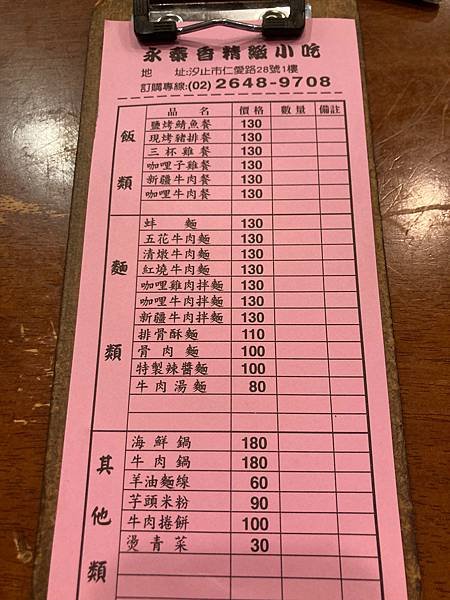 永泰香精緻小吃
地 址:汐止市仁愛路28號1樓
訂購專線:(02) 2648-9708
品 名 價格 數量 備註
飯類
鹽烤鯖魚餐 130
現烤豬排餐 130
三杯雞餐 130
咖哩子雞餐 130
新疆牛肉餐 130
咖哩牛肉餐 130
麵類
蚌 麵 130
五花牛肉麵 130
清燉牛肉麵 130
紅燒牛肉麵 130
咖哩雞肉拌麵 130
咖哩牛肉拌麵 130
新疆牛肉拌麵 130
排骨酥麵 110
骨肉麵 100
特製辣醬麵 100
牛肉湯麵 80
其他類
海鮮鍋 180
牛肉鍋 180
羊油麵線 60
芋頭米粉 90
牛肉捲餅 100
燙青菜 30